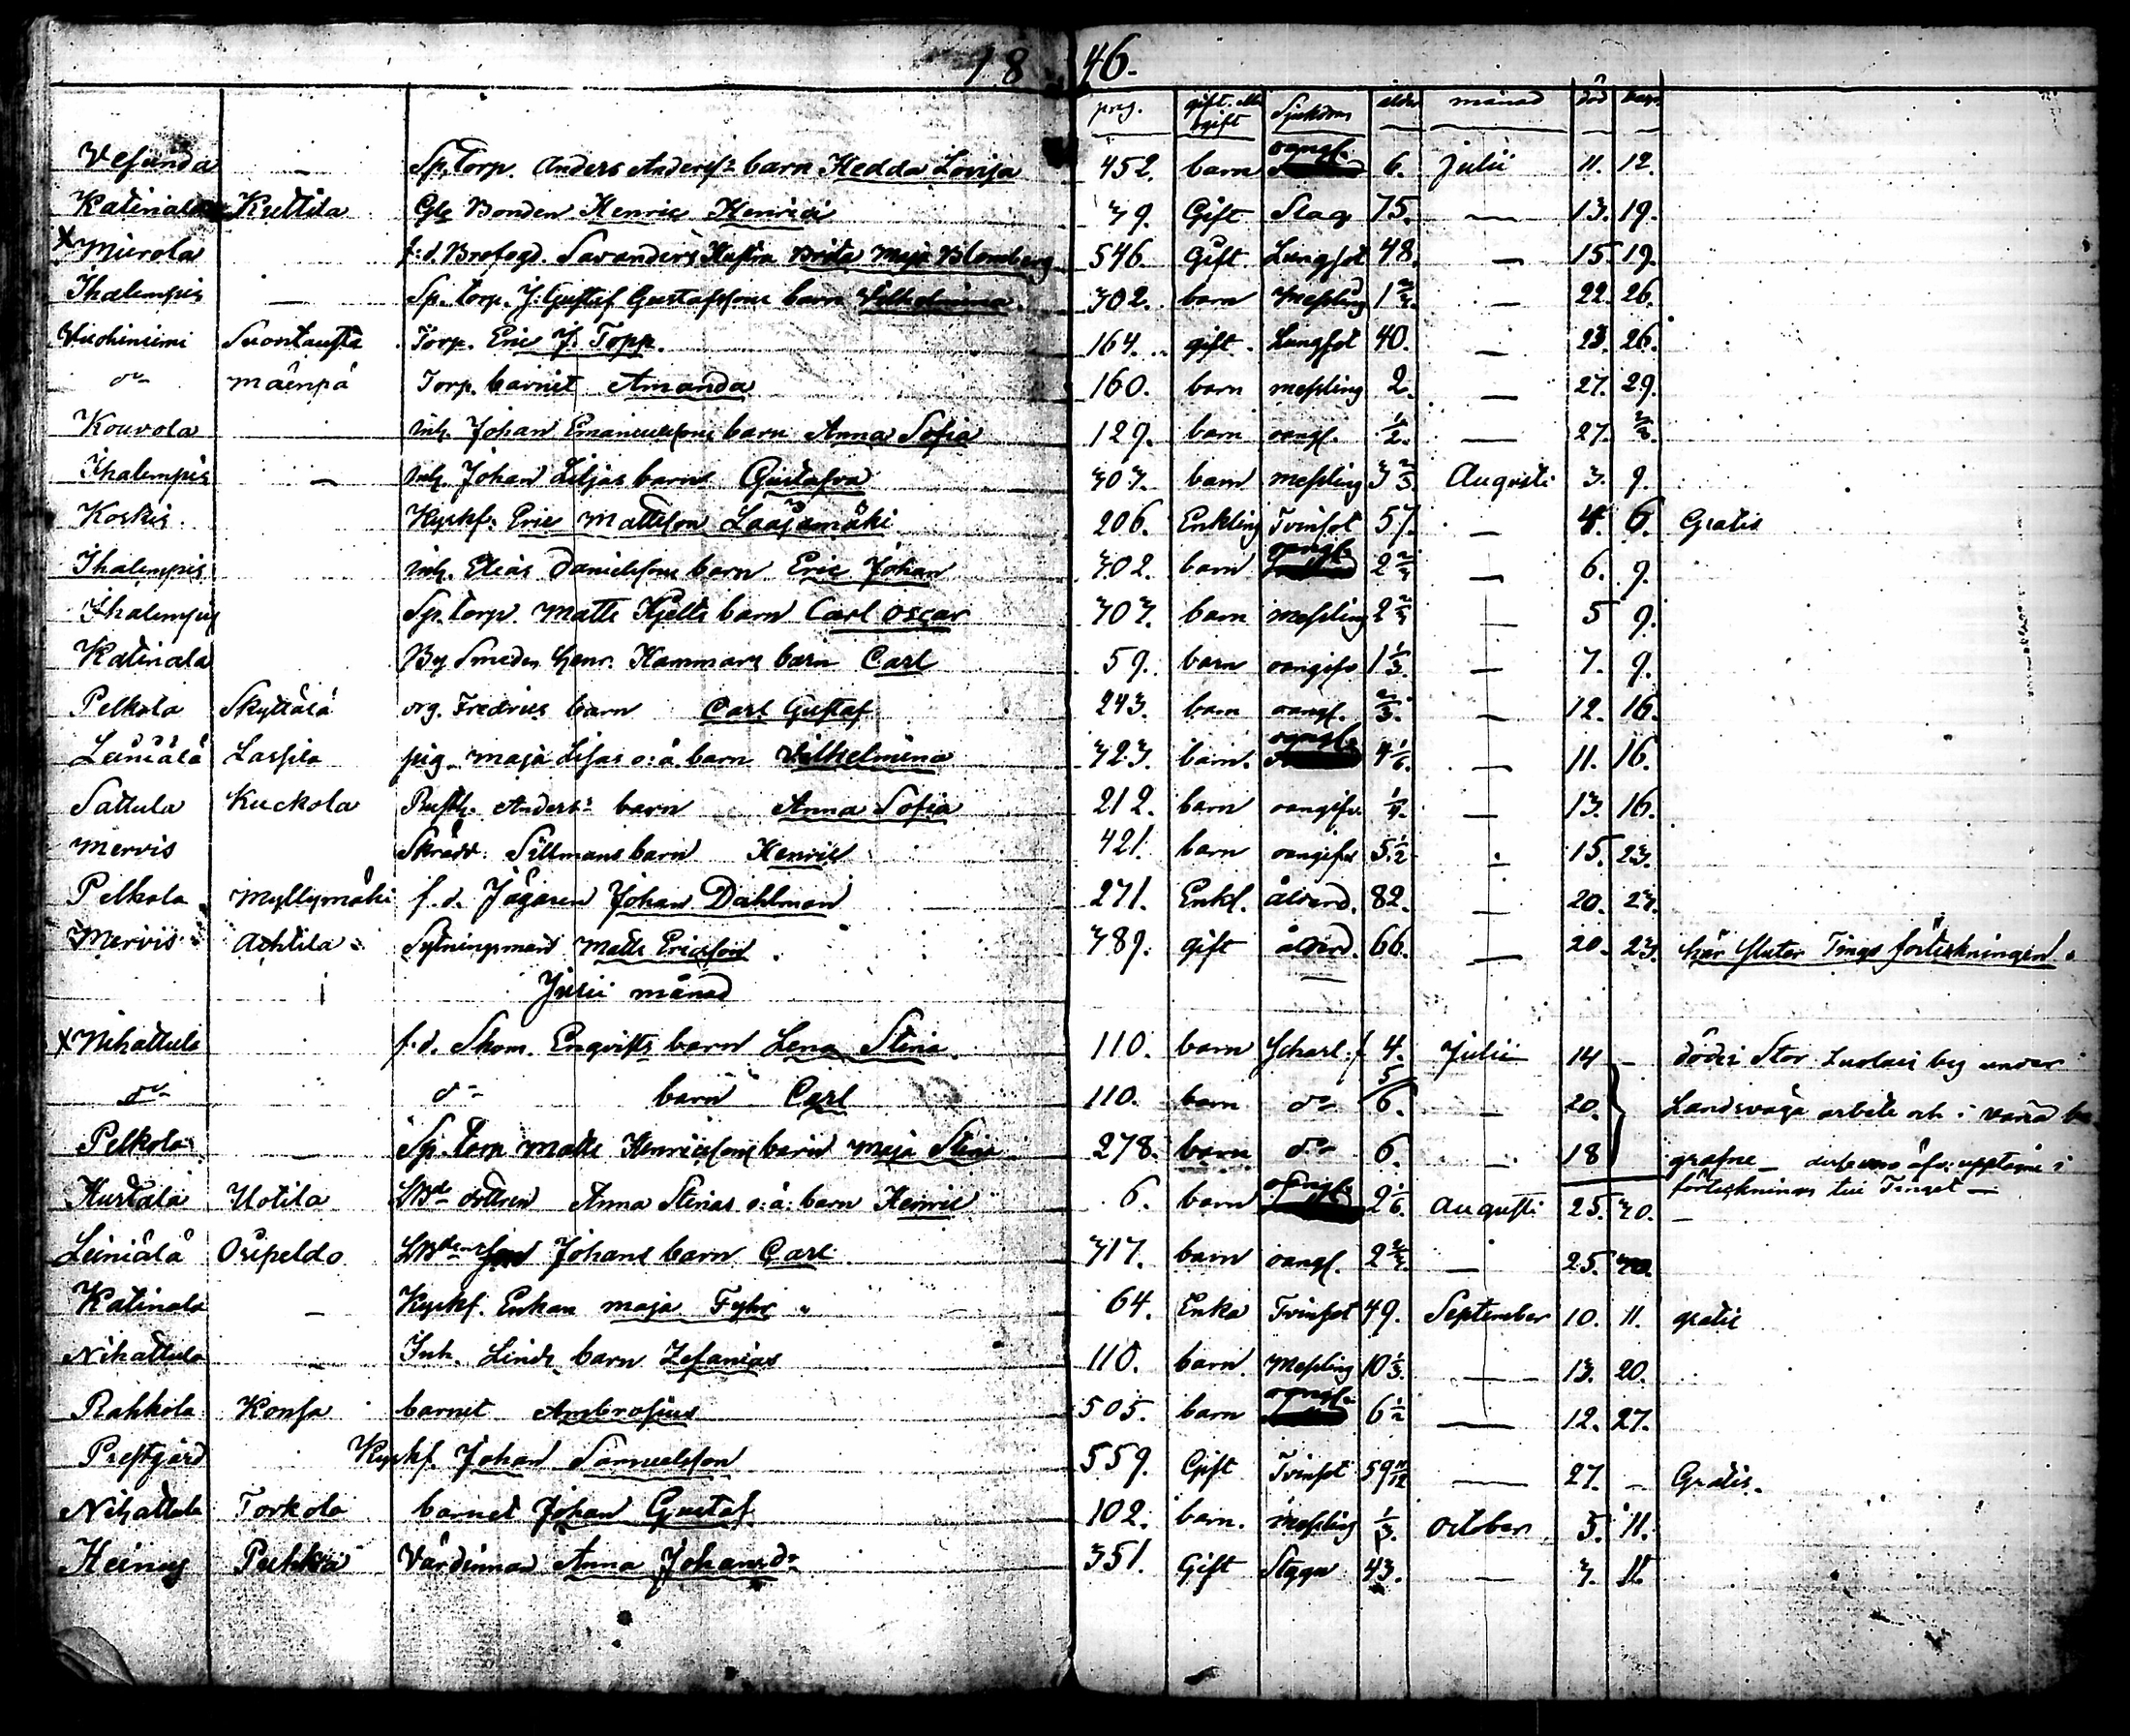 1846.
pag. gift. ell. ogift Sjukdom ålder månad död begr.
Vesunda — Sp. Torp. Anders Anderss: barn Hedda Lovisa 452. barn oangf. 6. Julii 11. 12.
Katinala Kuttila Gle Bonden Henric Henrici 39. Gift Slag 75. — 13. 19.
x Mierola f:d. Brofogd. Savanders Hustru Brita Maja Blomberg 546. Gift. Lungsot 48. — 15. 19.
Ihalempis — Sp. Torp. J: Gustaf Gustafssons barn Vilhelmina 302. barn Messling 1 2/3. — 22. 26.
Vuohiniemi Suontausta Torp. Eric J. Topp. 164. gift. Lungsot 40. — 23. 26.
do mäenpä Torp. barnet Amanda 160. barn messling 2. — 27. 29.
Kouvola inh. Johan Emanuelssons barn Anna Sofia 129. barn oangf. 1/2. — 27.
Ihalempis — inh. Johan Liljas barn Gustafva 303. barn messling 3 2/3. Augusti 3. 9.
Koskis Kyrkf. Eric Mattsson Laajamäki 206. Enkling Tvinsot 57. — 4. 6. Gratis
Ihalempis inh. Elias Danielssons barn Eric Johan 302. barn oangf. 2 2/3 — 6. 9.
Ihalempis Sp. torp. Matts Hjelts barn Carl Oscar 303. barn messling 2 2/3 — 5 9.
Katinala By Smeden Henr. Hammars barn Carl 59. barn oangifv 1 1/3. — 7. 9.
Pelkola Skyttälä Fredrics barn Carl Gustaf 243. barn oangf. 2/3. — 12. 16.
Leiniälä Lassila pig. Maja Lisas o:ä. barn Vilhelmina 323. barn. oangf. 4 1/6. — 11. 16.
Sattula Kuckola Rusth. Anders: barn Anna Sofia 212. barn oangifv. — 13. 16.
Mervis Skrädd: Sillmans barn Henric 421. barn oangifvet 5 1/2 15. 23.
Pelkola Myllymäki f. d. Jägaren Johan Dahlman 271. Enkl. ålderd. 82. — 20. 23.
Mervis Achtila Sytningsman Matts Ericsson 389. gift ålderd. 66. — 20. 23. här slutar Tings förtekningen.
Julii månad
x Nihattula f. d. Skom. Enqvists barn Lena Stina 110. barn Scharl: f 4. Julii 14 — döde i Stor by under
do do barn Carl 110. barn do 5/6. — 20. Landsväga arbete och i
Pelkola — Sp. torp Matts Henricssons barn Maja Stina 278. barn do 6. — 18 grafne — upptagne i
förtekningen till Tinget —
Hurtala Uotila Anna Stinas o: ä: barn Henric 6. barn oangf. 2 1/6. Augusti 25. 30. —
Leiniälä Orjpeldo Johans barn Carl 317. barn oangf. 2 2/3. — 25. 30.
Katinala — Kyrkf. Enkan Maja Fyhr 64. Enka Tvinsot 49. September 10. 11. gratis
Nihattula — Inh. Linds barn Zefanias 110. barn. Messling 10 1/3. — 13. 20.
Rahkola Konsa barnet Ambrosius 505. barn oangf. 6 1/2 — 12. 27.
Prestgård Kyrkf. Johan Samuelsson 559. Gift Tvinsot 59 11/12 — 27. — Gratis.
Nihattula Torkola barnet Johan Gustaf 102. barn. Messling 1/3. October 5. 11.
Heinus Puhka Värdinnan Anna Johansdr 351. Gift 43. — 3. 11.